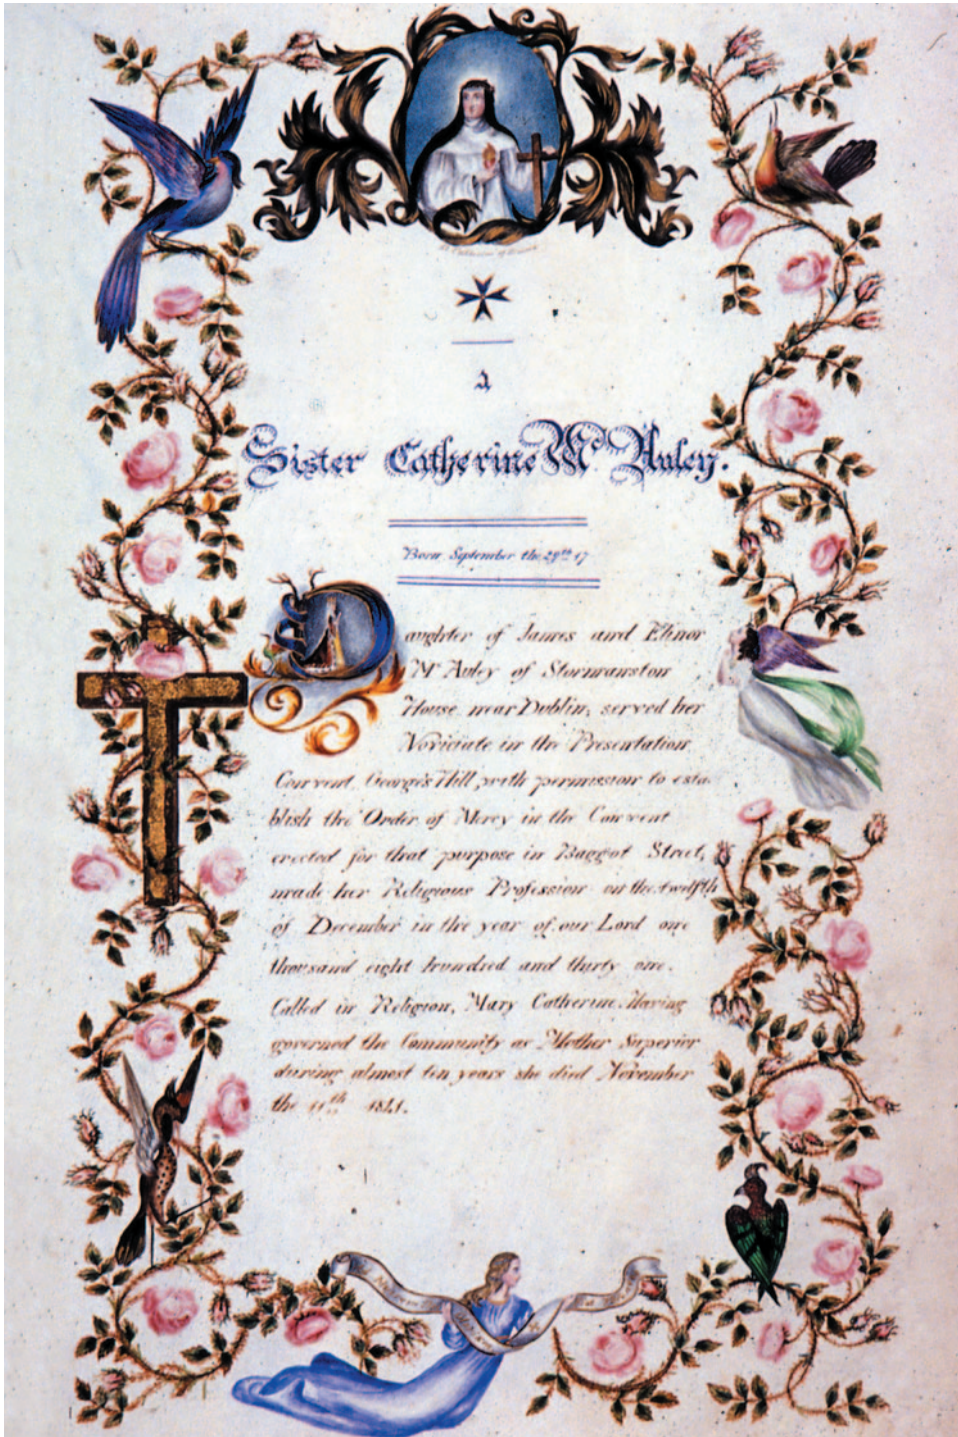 St Catherine of Sienna
A
Sister Catherine Mc Auley.
Born September the 29th 17
Daughter of James and Elinor
Mc Auley of Stormanston
House near Dublin, served her
Noviciate in the Presentation
Convent, George's Hill, with permission to esta-
blish the Order of Mercy in the Convent
erected for that purpose in Baggot Street,
made her Religious Profession on the twelfth
of December in the year of our Lord one
thousand eight hundred and thirty one.
Called in Religion, Mary Catherine. Having
governed the Community as Mother Superior
during almost ten years she died November
the 11th 1841.